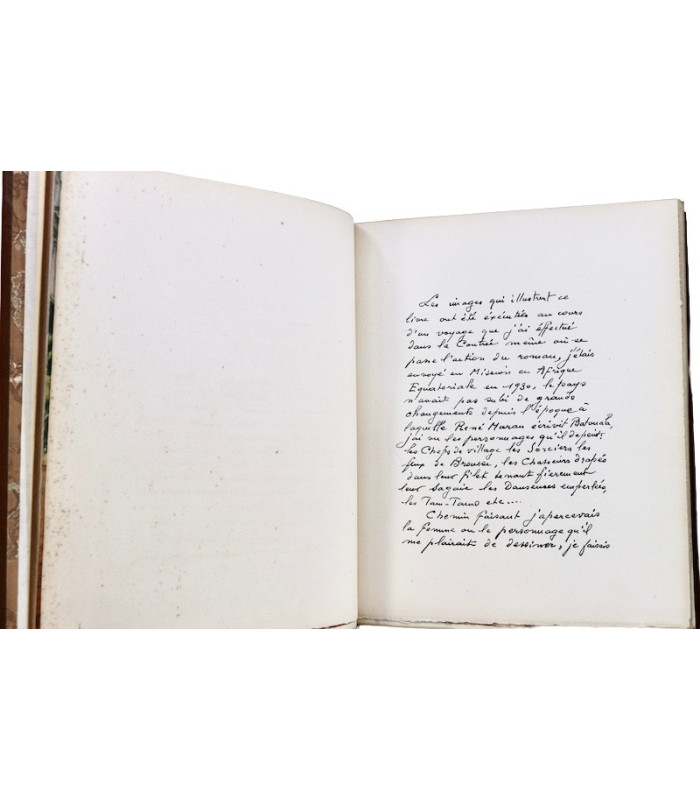 Les images qui illustrent ce
livre ont été éxécutées au cours
d'un voyage que j'ai éffectué
dans la Contrée même où se
passe l'action du roman, j'étais
envoyé en Mission en Afrique
Equatoriale en 1930, le pays
n'avait pas subi de grands
changements depuis l'époque à
laquelle René Maran écrivit Batouala,
j'ai vu les personnages qu'il dépeint;
les Chefs de village les Sorciers les
feux de Brousse, les Chasseurs drapés
dans leur filet tenant fierement
leur sagaie les Danseuses emperlées,
les Tam-Tams etc....
Chemin faisant j'apercevais
la femme ou le personnage qu'il
me plairait de dessiner, je faisais